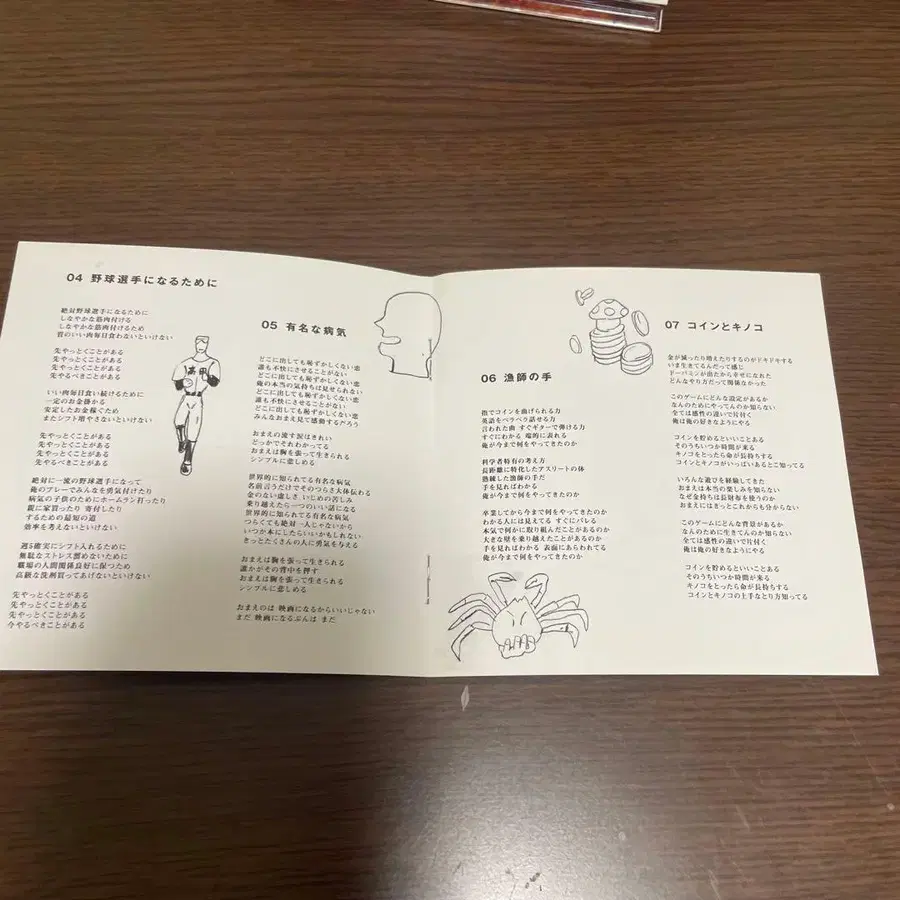 04 野球選手になるために
絶対野球選手になるために
しなやかな筋肉付ける
しなやかな筋肉付けるため
質のいい肉毎日食わないといけない
先やっとくことがある
先やっとくことがある
先やっとくことがある
先やるべきことがある
いい肉毎日食い続けるために
一定のお金掛かる
安定したお金稼ぐため
またシフト増やさないといけない
先やっとくことがある
先やっとくことがある
先やっとくことがある
先やるべきことがある
絶対に一流の野球選手になって
俺のプレーでみんなを勇気付けたり
病気の子供のためにホームラン打ったり
親に家買ったり 寄付したり
するための最短の道
効率を考えないといけない
週5確実にシフト入れるために
無駄なストレス溜めないために
職場の人間関係良好に保つため
高級な洗剤買ってあげないといけない
先やっとくことがある
先やっとくことがある
先やっとくことがある
今やるべきことがある
高田
05 有名な病気
どこに出しても恥ずかしくない悲
誰も不快にさせることがない
どこに出しても恥ずかしくない悲
俺の本当の気持ちは見せられない
どこに出しても恥ずかしくない悲
誰も不快にさせることがない
どこに出しても恥ずかしくない悲
みんなおまえ見て感動するだろう
おまえの流す涙はきれい
どっかでそれわかってる
おまえは胸を張って生きられる
シンプルに悲しめる
世界的に知られてる有名な病気
名前言うだけでそのつらさ大体伝わる
金のない虚しさ いじめの苦しみ
乗り越えたら一つのいい話になる
世界的に知られてる有名な病気
つらくても絶対一人じゃないから
いつか本にしたらいいかもしれない
きっとたくさんの人に勇気を与える
おまえは胸を張って生きられる
誰かがその背中を押す
おまえは胸を張って生きられる
シンプルに悲しめる
おまえのは 映画になるからいいじゃない
まだ 映画になるぶんは まだ
06 漁師の手
指でコインを曲げられる力
英語をペラペラ話せる力
言われた曲 すぐギターで弾ける力
すぐにわかる 端的に表れる
俺が今まで何をやってきたのか
科学者特有の考え方
長距離に特化したアスリートの体
熟練した漁師の手だ
手を見ればわかる
俺が今まで何をやってきたのか
卒業してから今まで何をやってきたのか
わかる人には見えてる すぐにバレる
本気で何かに取り組んだことがあるのか
大きな壁を乗り越えたことがあるのか
手を見ればわかる 表面にあらわれてる
俺が今まで何をやってきたのか
07 コインとキノコ
金が減ったり増えたりするのがドキドキする
いま生きてるんだって感じ
ドーパミンが出たから幸せになれた
どんなやり方だって関係なかった
このゲームにどんな設定があるか
なんのためにやってんのか知らない
全ては感性の違いで片付く
俺は俺の好きなようにやる
コインを貯めるといいことある
そのうちいつか時間が来る
キノコをとったら命が長持ちする
コインとキノコがいっぱいあるとこ知ってる
いろんな遊びを経験してきた
おまえは本当の楽しみを知らない
なぜ金持ちは長財布を使うのか
おまえにはきっとこれからも分からない
このゲームにどんな背景があるか
なんのために生きてんのか知らない
全ては感性の違いで片付く
俺は俺の好きなようにやる
コインを貯めるといいことある
そのうちいつか時間が来る
キノコをとったら命が長持ちする
コインとキノコの上手なとり方知ってる